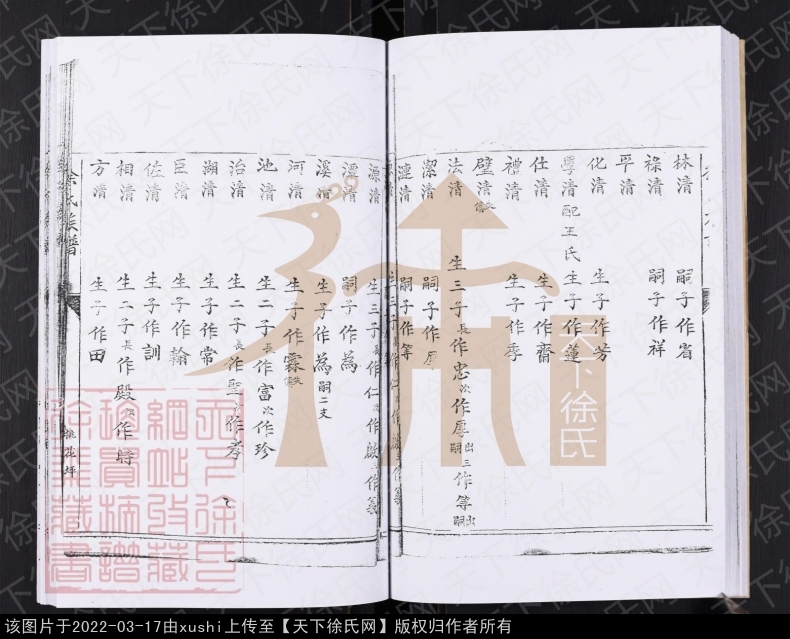 林清 嗣子作省
祿清 嗣子作祥
平清
化清 生子作芳
學清配王氏生子作蓮
仕清 生子作齋
禮清 生子作季
璧清失傳
法清 生三子長作忠次作厚出嗣三作等出嗣
潔清 嗣子作厚
漣清 嗣子作等
源清 生三子長作仁次作啟三作義
澧清 嗣子作為
溪清 生子作為嗣二支
河清 生子作霖失傳
池清 生二子長作富次作珍
治清 生二子長作聖次作孝
湖清 生子作常
巨清 生子作翰
佐清 生子作訓
相清 生二子長作殿次作時
方清 生子作田
徐氏族譜
桃花坪
天下徐氏
天下徐氏网
该图片于2022-03-17由xushi上传至【天下徐氏网】版权归作者所有